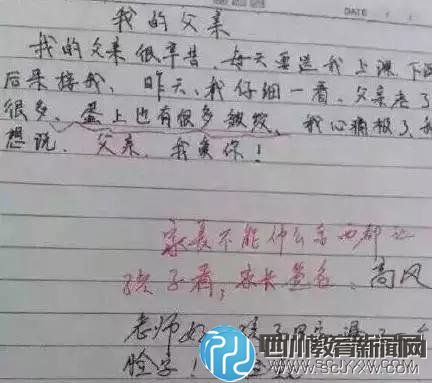 我的父亲
我的父亲很辛苦,每天要送我上课,下课
后来接我。昨天,我仔细一看,父亲老了
很多,蛋上也有很多皱纹。我心痛极了,我
想说,父亲,我爱你!
家长不能什么东西都让
孩子看,家长签名:高风
老师好,孩子
脸字!
四川教育新闻网
WWW.SCJYXW.COM
DATE